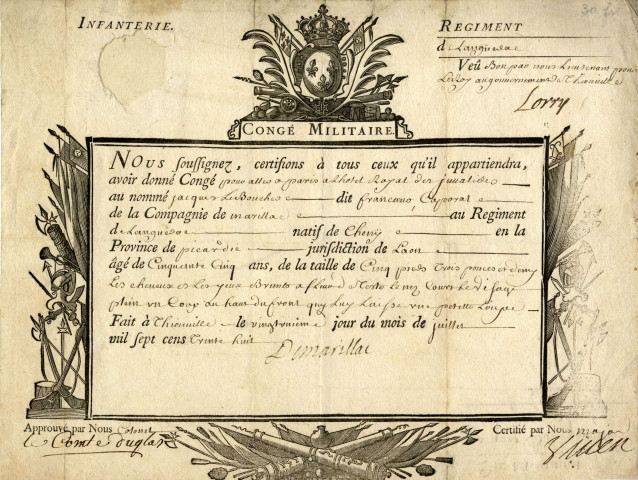 30
INFANTERIE.
REGIMENT
de Languedoc
Veû Bon par nous Lieutenant pour
Le Roy au gouvernement de Thionville
Lorry
CONGÉ MILITAIRE.
NOUS soussignez, certifions à tous ceux qu'il appartiendra,
avoir donné Congé pour aller a paris a Lhotel Royal des jnvalides
au nommé jacques LeBoucher dit francœur Caporal
de la Compagnie de marillac au Regiment
de Languedoc natif de Chery en la
Province de picardie jurisdiction de Laon
âgé de Cinquante Cinq ans, de la taille de Cinq pieds Trois pouces et demy
Les cheveux et Les yeux Bruns a fleur de Teste Le nez Court Le visage
plein un Coup au haut du front quy Luy Laisse une petitte Loupe
Fait à Thionville le vingtneuvieme jour du mois de juillet
mil sept cens Trente huit
Demarillac
Approuvé par Nous Colonel
le Comte Douglas
Certifié par Nous major